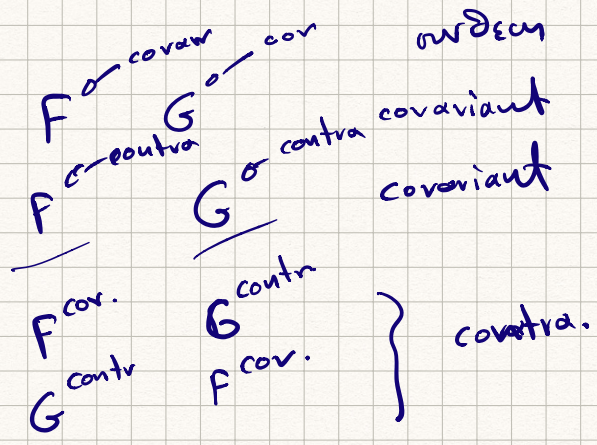 F covar G cor
covariant
F contra G contra covariant
F cor. G contr
G contr F cor. contra.